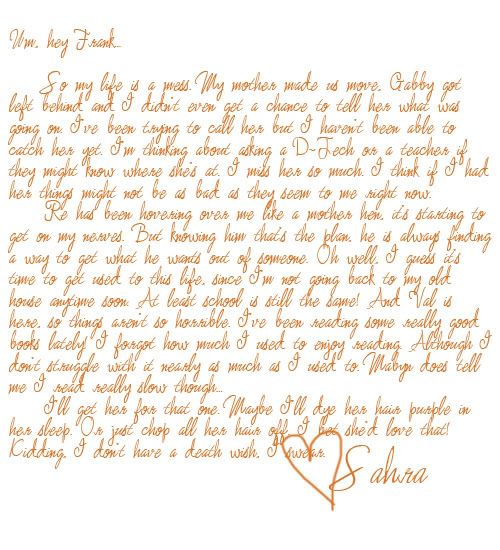 Um, hey Frank...
So my life is a mess. My mother made us move, Gabby got
left behind and I didn't even get a chance to tell her what was
going on. I've been trying to call her but I haven't been able to
catch her yet. I'm thinking about asking a D-Tech or a teacher if
they might know where she's at. I miss her so much. I think if I had
her things might not be as bad as they seem to me right now.
Re has been hovering over me like a mother hen, it's starting to
get on my nerves. But knowing him that's the plan, he is always finding
a way to get what he wants out of someone. Oh well, I guess it's
time to get used to this life, since I'm not going back to my old
house anytime soon. At least school is still the same! And Val is
here, so things aren't so horrible. I've been reading some really good
books lately. I forgot how much I used to enjoy reading. Although I
don't struggle with it nearly as much as I used to. Mabyn does tell
me I read really slow though...
I'll get her for that one. Maybe I'll dye her hair purple in
her sleep. Or just chop all her hair off, I bet she'd love that!
Kidding, I don't have a death wish, I swear.
Sahra